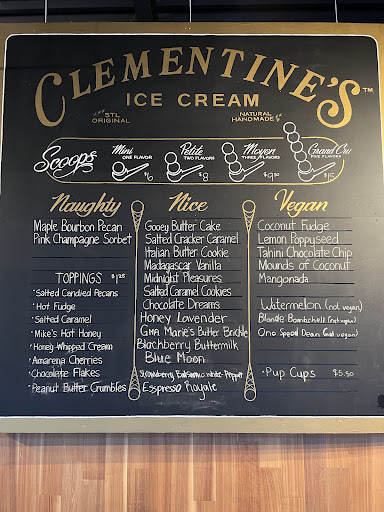 CLEMENTINE'S™
ICE CREAM
STL
ORIGINAL
NATURAL
HANDMADE
Scoops
Mini
ONE FLAVOR
$6
Petite
TWO FLAVORS
$8
Moyen
THREE FLAVORS
Grand Cru
FIVE FLAVORS
$15
Naughty
Maple Bourbon Pecan
Pink Champagne Sorbet
TOPPINGS $1.25
• Salted Candied Pecans
• Hot Fudge
• Salted Caramel
• Mike's Hot Honey
• Honey Whipped Cream
• Amarena Cherries
• Chocolate Flakes
• Peanut Butter Crumbles
Nice
Gooey Butter Cake
Salted Cracker Caramel
Italian Butter Cookie
Madagascar Vanilla
Midnight Pleasures
Salted Caramel Cookies
Chocolate Dreams
Honey Lavender
Gma Marie's Butter Brickle
Blackberry Buttermilk
Blue Moon
Strawberry Balsamic White Pepper
Espresso Royale
Vegan
Coconut Fudge
Lemon Poppyseed
Tahini Chocolate Chip
Mounds of Coconut
Mangonada
Watermelon (not vegan)
Blonde Bombshell (not vegan)
One Speed Dean (not vegan)
• Pup Cups $5.50